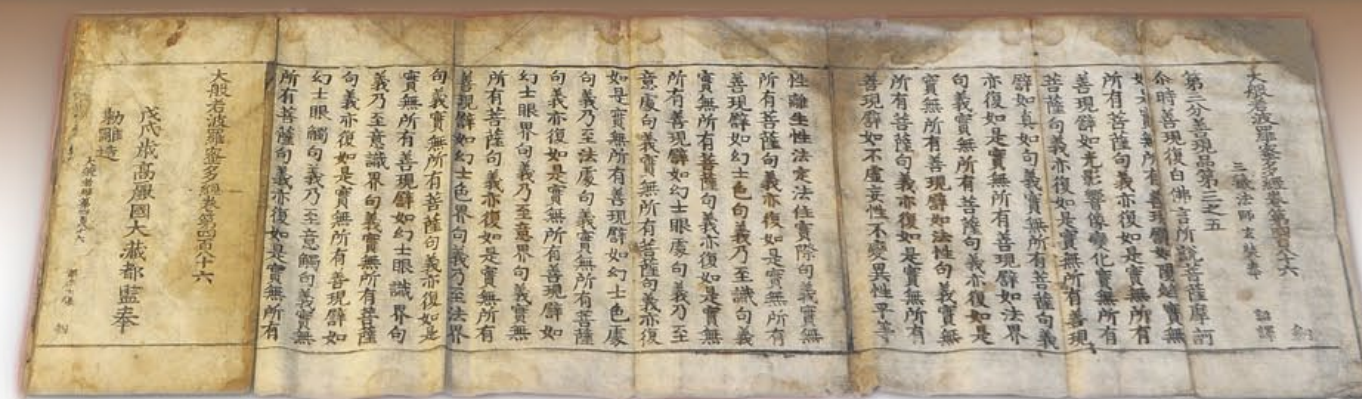 大般若波羅蜜多經卷第四百八十六
三藏法師玄奘奉 詔譯
第三分善現品第三之五
尒時善現復白佛言所說菩薩摩訶
所有菩薩句義亦復如是實無所有
善現譬如光影響像變化實無所有
菩薩句義亦復如是實無所有善現
譬如真如句義實無所有菩薩句義
亦復如是實無所有善現譬如法界
句義實無所有菩薩句義亦復如是
實無所有善現譬如法性句義實無
所有菩薩句義亦復如是實無所有
善現譬如不虛妄性不變異性平等
性離生性法定法住實際句義實無
所有菩薩句義亦復如是實無所有
善現譬如幻士色句義乃至識句義
實無所有菩薩句義亦復如是實無
所有善現譬如幻士眼處句義乃至
意處句義實無所有菩薩句義亦復
如是實無所有善現譬如幻士色處
句義乃至法處句義實無所有菩薩
句義亦復如是實無所有善現譬如
幻士眼界句義乃至意界句義實無
所有菩薩句義亦復如是實無所有
善現譬如幻士色界句義乃至法界
句義實無所有菩薩句義亦復如是
實無所有善現譬如幻士眼識界句
義乃至意識界句義實無所有菩薩
句義亦復如是實無所有善現譬如
幻士眼觸句義乃至意觸句義實無
所有菩薩句義亦復如是實無所有
大般若波羅蜜多經卷第四百八十六
戊戌歲高麗國大藏都監奉
勅雕造